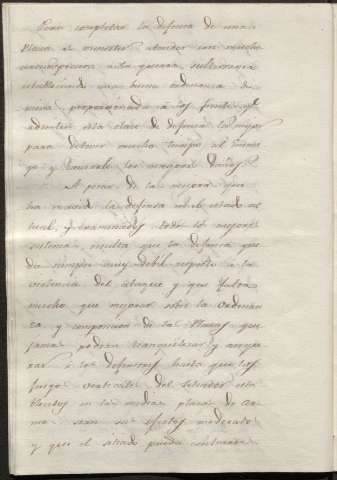 Para completar la defensa de una
Plaza es menester atender con mucha
circunspeccion a la guerra subterranea
estableciendo una buena ordenanza de
minas proporcionada a los frentes
esta clase de defensa la mejor
para detener mucho tiempo al Enemi
go y causarle los mayores daños.
A pesar de la mejora que
ha recivido la defensa en el estado ac
tual, y examinados todos los mejores
sistemas, resulta que la defensa que
da siempre muy debil respecto a la
violencia del ataque y que falta
mucho que mejorar sobre la ordenan
za y composicion de las Plazas que
jamas podran tranquilizar y asegu
rar a los defensores hasta que los
fuegos verticales del sitiador esta
blecidos en las medias plazas de ar
mas sean sus efectos moderados
y que el sitiado pueda contrarres